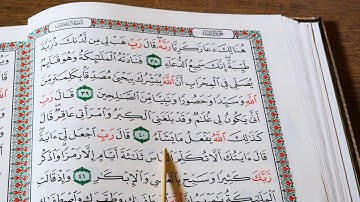 هُنَالِكَ دَعَا زَكَرِيَّا رَبَّهُۥ قَالَ رَبِّ هَبْ لِى مِن لَّدُنكَ ذُرِّيَّةً
طَيِّبَةً إِنَّكَ سَمِيعُ ٱلدُّعَآءِ ٣٨ فَنَادَتْهُ ٱلْمَلَٰٓئِكَةُ وَهُوَ قَآئِمٌ
يُصَلِّى فِى ٱلْمِحْرَابِ أَنَّ ٱللَّهَ يُبَشِّرُكَ بِيَحْيَىٰ مُصَدِّقًۢا بِكَلِمَةٍ مِّنَ
ٱللَّهِ وَسَيِّدًا وَحَصُورًا وَنَبِيًّا مِّنَ ٱلصَّٰلِحِينَ ٣٩ قَالَ رَبِّ
أَنَّىٰ يَكُونُ لِى غُلَٰمٌ وَقَدْ بَلَغَنِىَ ٱلْكِبَرُ وَٱمْرَأَتِى عَاقِرٌ قَالَ
كَذَٰلِكَ ٱللَّهُ يَفْعَلُ مَا يَشَآءُ ٤٠ قَالَ رَبِّ ٱجْعَل لِّىٓ ءَايَةً
قَالَ ءَايَتُكَ أَلَّا تُكَلِّمَ ٱلنَّاسَ ثَلَٰثَةَ أَيَّامٍ إِلَّا رَمْزًا وَٱذْكُر
رَّبَّكَ كَثِيرًا وَسَبِّحْ بِٱلْعَشِىِّ وَٱلْإِبْكَٰرِ ٤١ وَإِذْ قَالَتِ
ٱلْمَلَٰٓئِكَةُ يَٰمَرْيَمُ وَطَهَّرَكِ وَٱصْطَفَىٰكِ